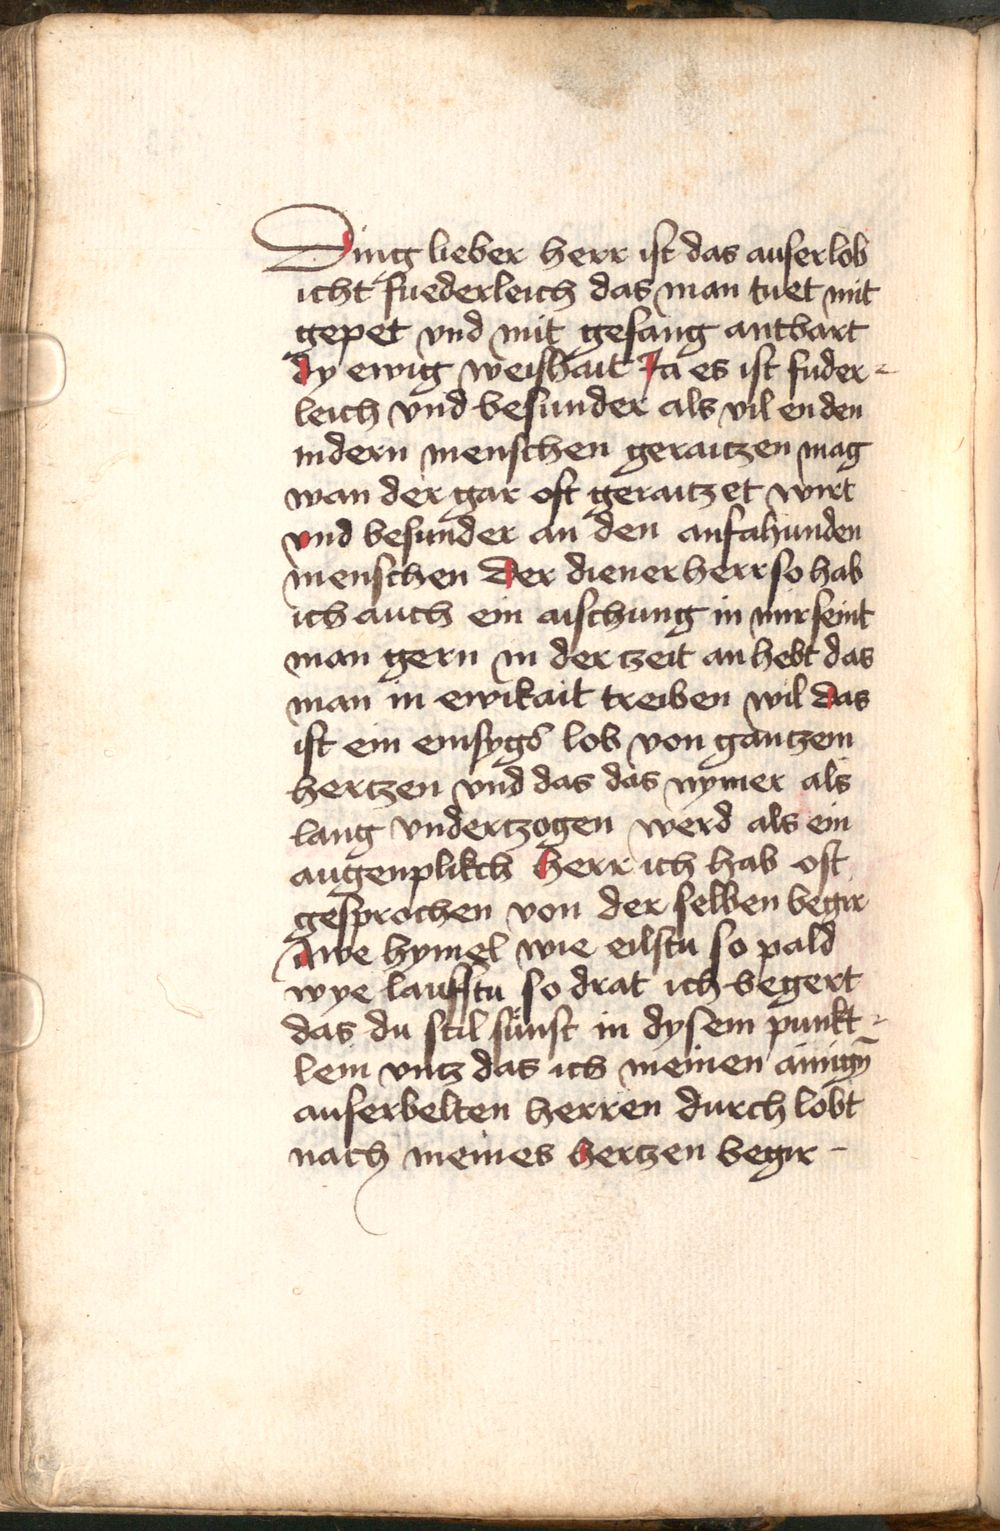 Ding lieber herr ist das auserlob
icht fuederleich das man tuet mit
gepet vnd mit gesang antbart
dy ewig weishait Ja es ist fuder-
leich vnd besunder als vil en den
indern menschen geraitzen mag
wan der gar oft geraitzet wirt
vnd besunder an den anfahunden
menschen Der diener herr so hab
ich auch ein aischung in mir seint
man gern in der tzeit an hebt das
man in ewikait treiben wil das
ist ein emsygs lob von gantzem
hertzen vnd das das nymer als
lang vndertzogen werd als ein
augenplikch herr ich hab oft
gesprochen von der selben begir
Awe hymel wie eilstu so pald
wye laufstu so drat ich begert
das du stil stünst in dysem punkt-
lein vntz das ich meinen ainigñ
auserbelten herren durch lobt
nach meines hertzen begir -